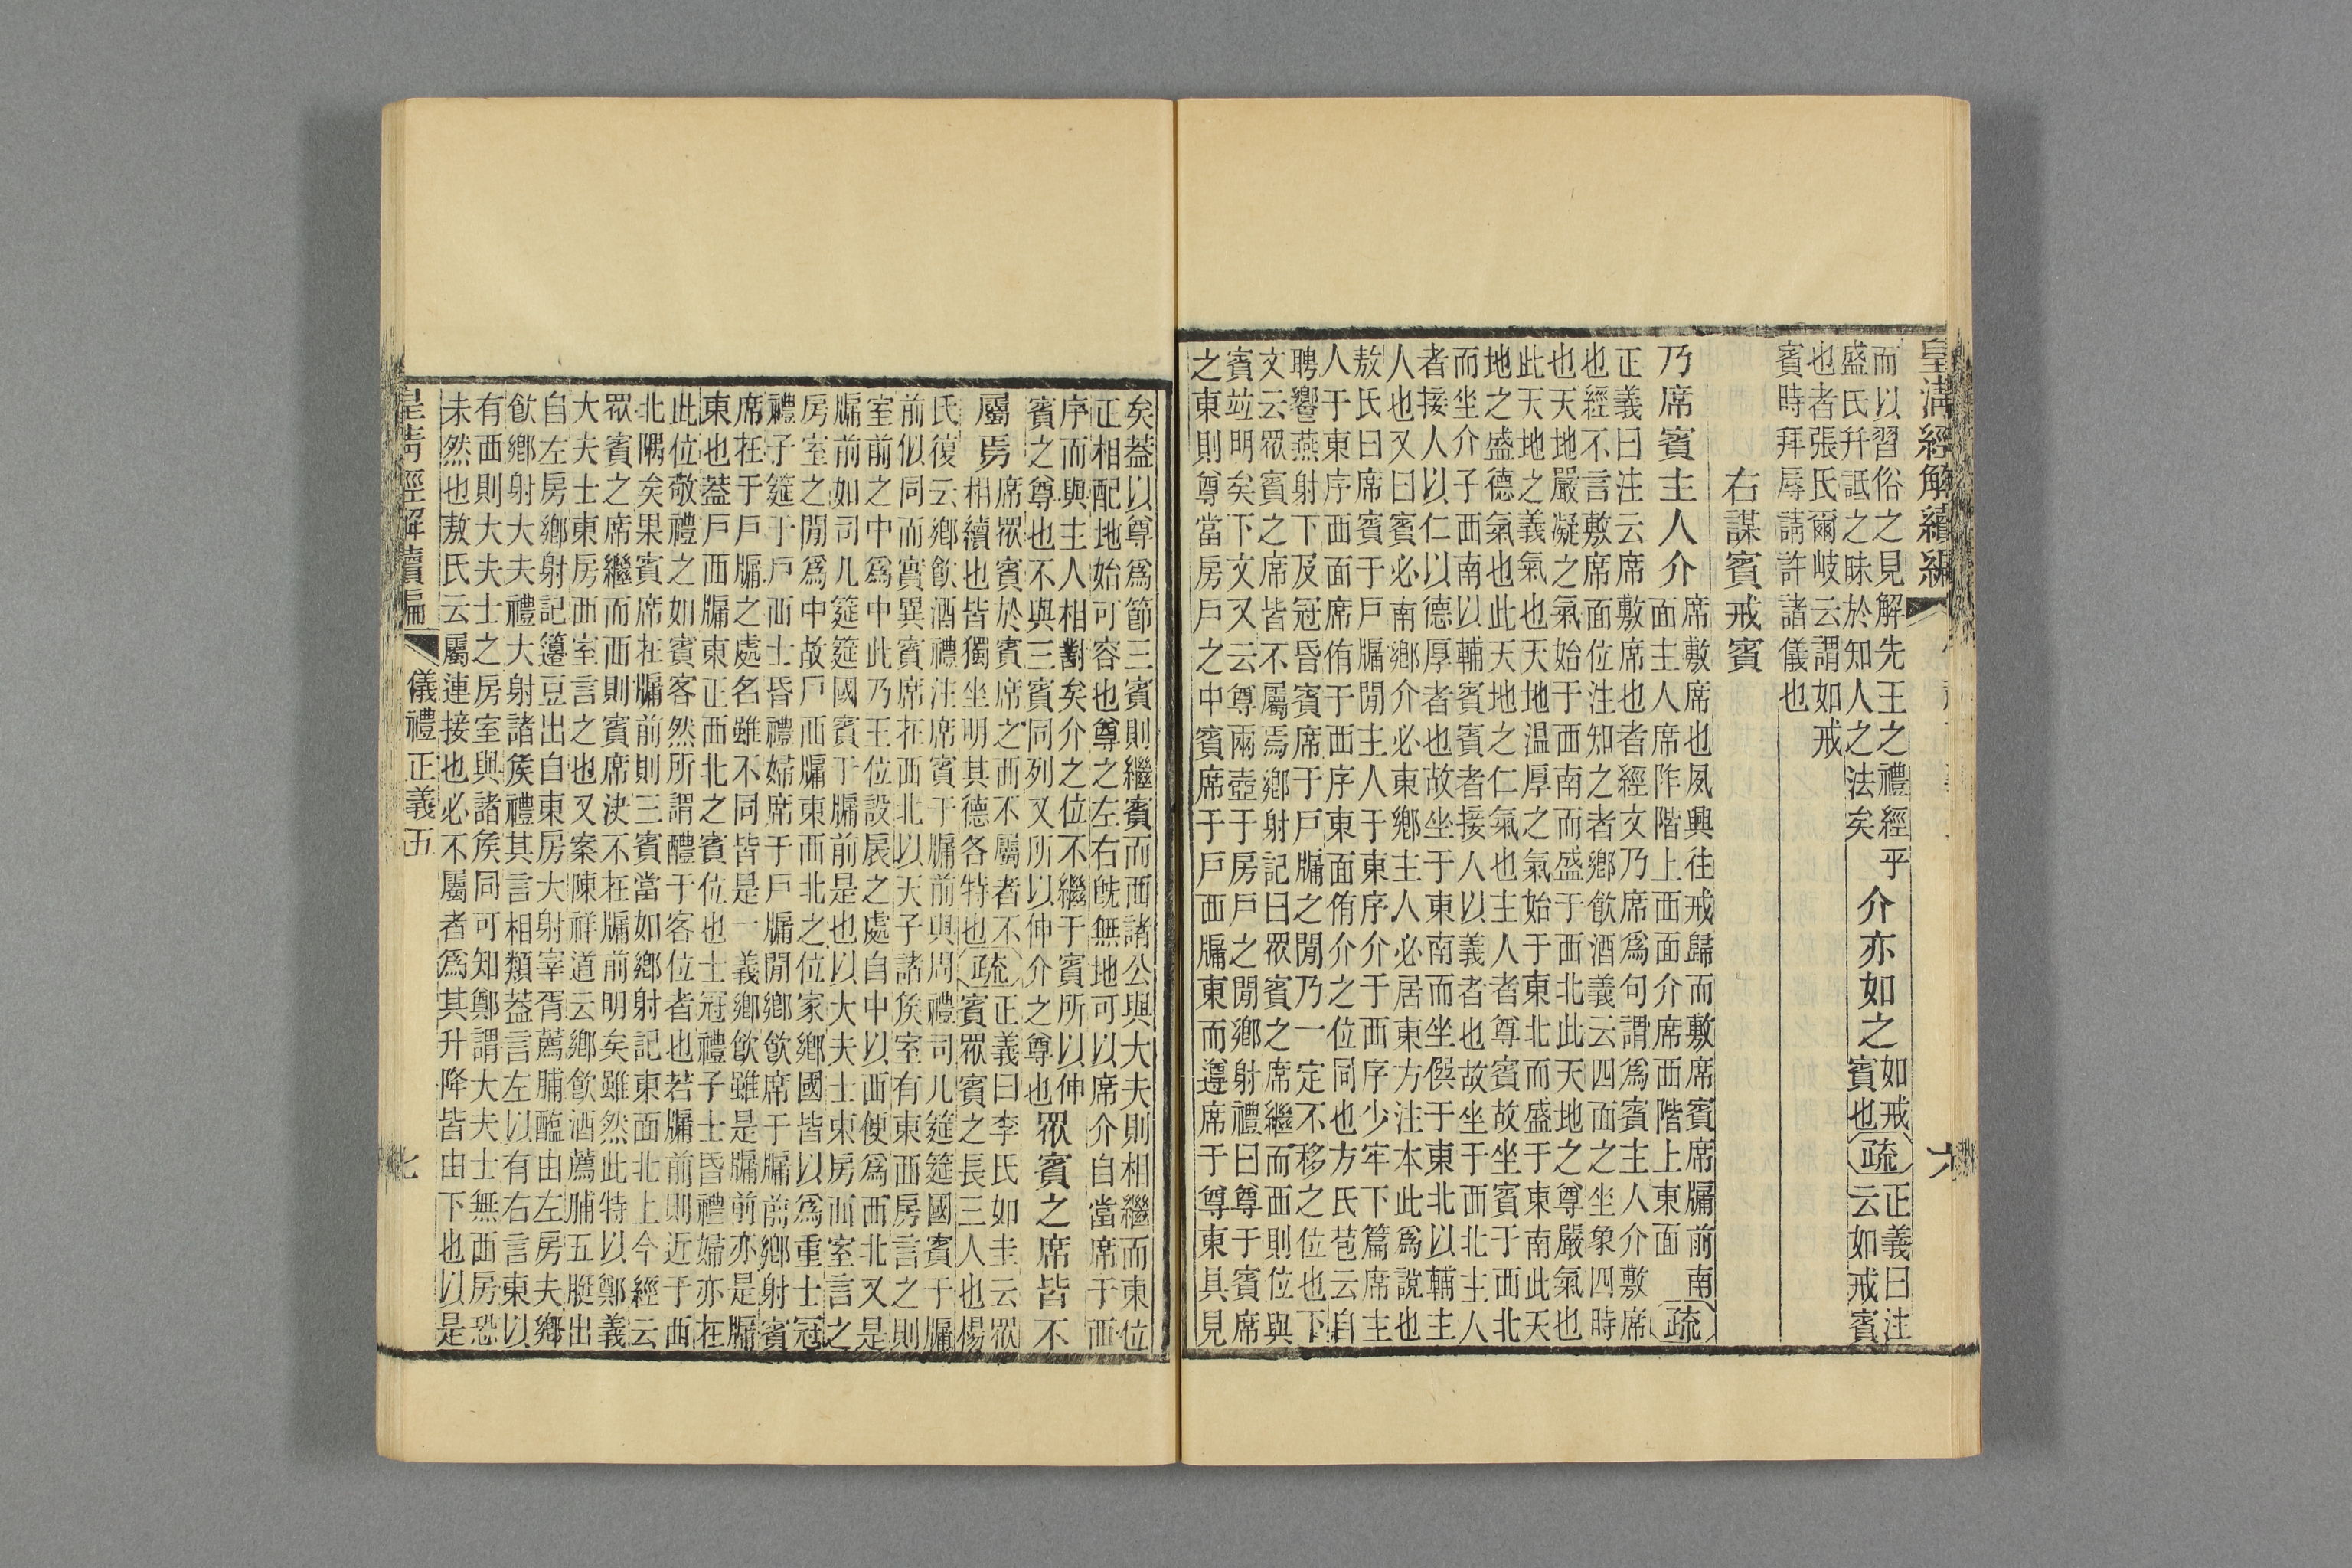 皇清經解續編
六
而以習俗之見解先王之禮經乎
盛氏幷詆之昧於知人之法矣
介亦如之
如戒
賓也
疏
正義曰注
云如戒賓
也者張氏爾岐云謂如戒
賓時拜辱請許諸儀也
右謀賓戒賓
乃席賓主人介
席敷席也夙興往戒歸而敷席賓席牖前南
面主人席阼階上西面介席西階上東面
疏
正義曰注云席敷席也者經文乃席爲句謂爲賓主人介敷席
也經不言敷席面位注知之者鄉飮酒義云四面之坐象四時
也天地嚴凝之氣始于西南而盛于西北此天地之尊嚴氣也
此天地之義氣也天地温厚之氣始于東北而盛于東南此天
地之盛德氣也此天地之仁氣也主人者尊賓故坐賓于西北
而坐介于西南以輔賓賓者接人以義者也故坐于西北主人
者接人以仁以德厚者也故坐于東南而坐僎于東北以輔主
人也又曰賓必南鄉介必東鄉主人必居東方注本此爲說也
敖氏曰席賓于戶牖閒主人于東序介于西序少牢下篇席主
人于東序西面席侑于西序東面侑介之位同也方氏苞云自
聘響燕射下及冠昏賓席于戶牖之閒乃一定不移之位也下
文云眾賓之席皆不屬焉鄉射記曰眾賓之席繼而西則位與
賓竝明矣下文又云尊兩壺于房戶之閒鄉射禮曰尊于賓席
之東則尊當房戶之中賓席于戶西牖東而遵席于尊東具見
矣蓋以尊爲節三賓則繼賓而西諸公與大夫則相繼而東位
正相配地始可容也尊之左右旣無地可以席介自當席于西
序而與主人相對矣介之位不繼于賓所以伸
賓之尊也不與三賓同列又所以伸介之尊也
眾賓之席皆不
屬焉
席眾賓於賓席之西不屬者不
相續也皆獨坐明其德各特也
疏
正義曰李氏如圭云眾
賓眾賓之長三人也楊
氏復云鄉飮酒禮注席賓于牖前與周禮司几筵筵國賓于牖
前似同而實異賓席在西北以天子諸矦室有東西房言之則
室前之中爲中此乃王位設扆之處自中以西便爲西北又是
牖前如司几筵筵國賓于牖前是也以大夫士東房西室言之
房室之閒爲中故戶西牖東西北之位家鄉國皆以爲重士冠
禮子筵于戶西士昏禮婦席于戶牖閒鄉飮席于牖前鄉射賓
席在于戶牖之處名雖不同皆是一義鄉飮雖是牖前亦是牖
東也蓋戶西牖東正西北之賓位也士冠禮子士昏禮婦亦在
此位敬禮之如賓客然所謂醴于客位者也若牖前則近于西
北隅矣果賓席在牖前則三賓當如鄉射記東面北上今經云
眾賓之席繼而西則賓席決不在牖前明矣雖然此特以鄭義
大夫士東房西室言之也又案陳祥道云鄉飮酒薦脯五脡出
自左房鄉射記籩豆出自東房大射宰胥薦脯醢由左房夫鄉
飮鄉射大夫禮大射諸矦禮其言相類蓋言左以有右言東以
有西則大夫士之房室與諸矦同可知鄭謂大夫士無西房恐
未然也敖氏云屬連接也必不屬者爲其升降皆由下也以是
皇淸經解續編
儀禮正義五
七